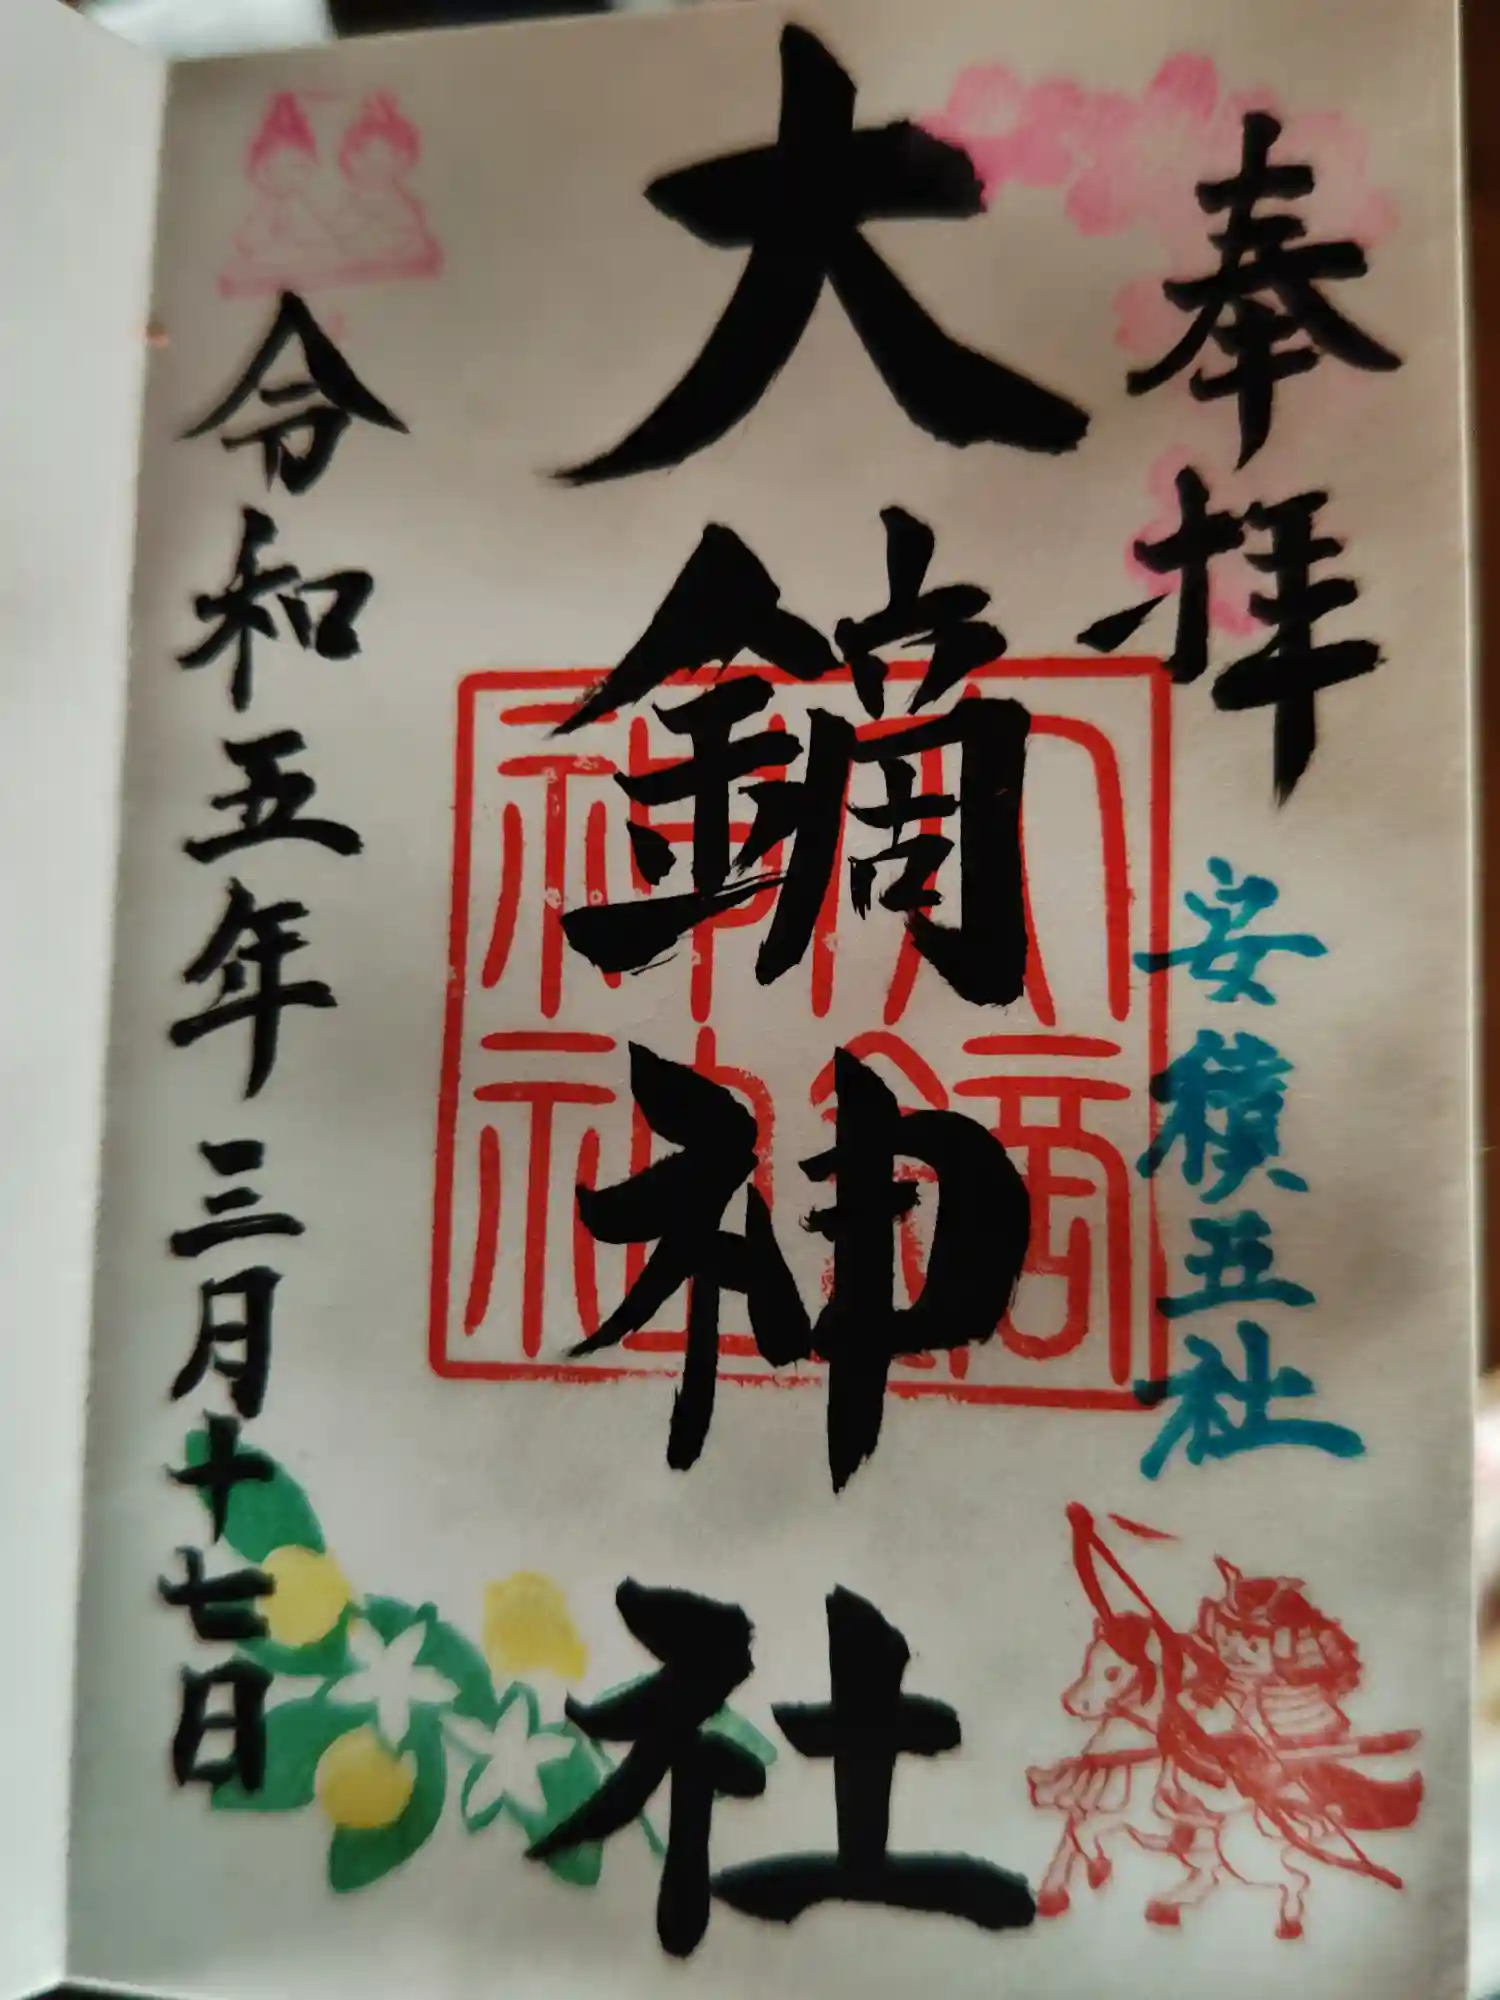 奉拝
安積五社
大鏑神社
大鏑
神社
令和五年三月十七日